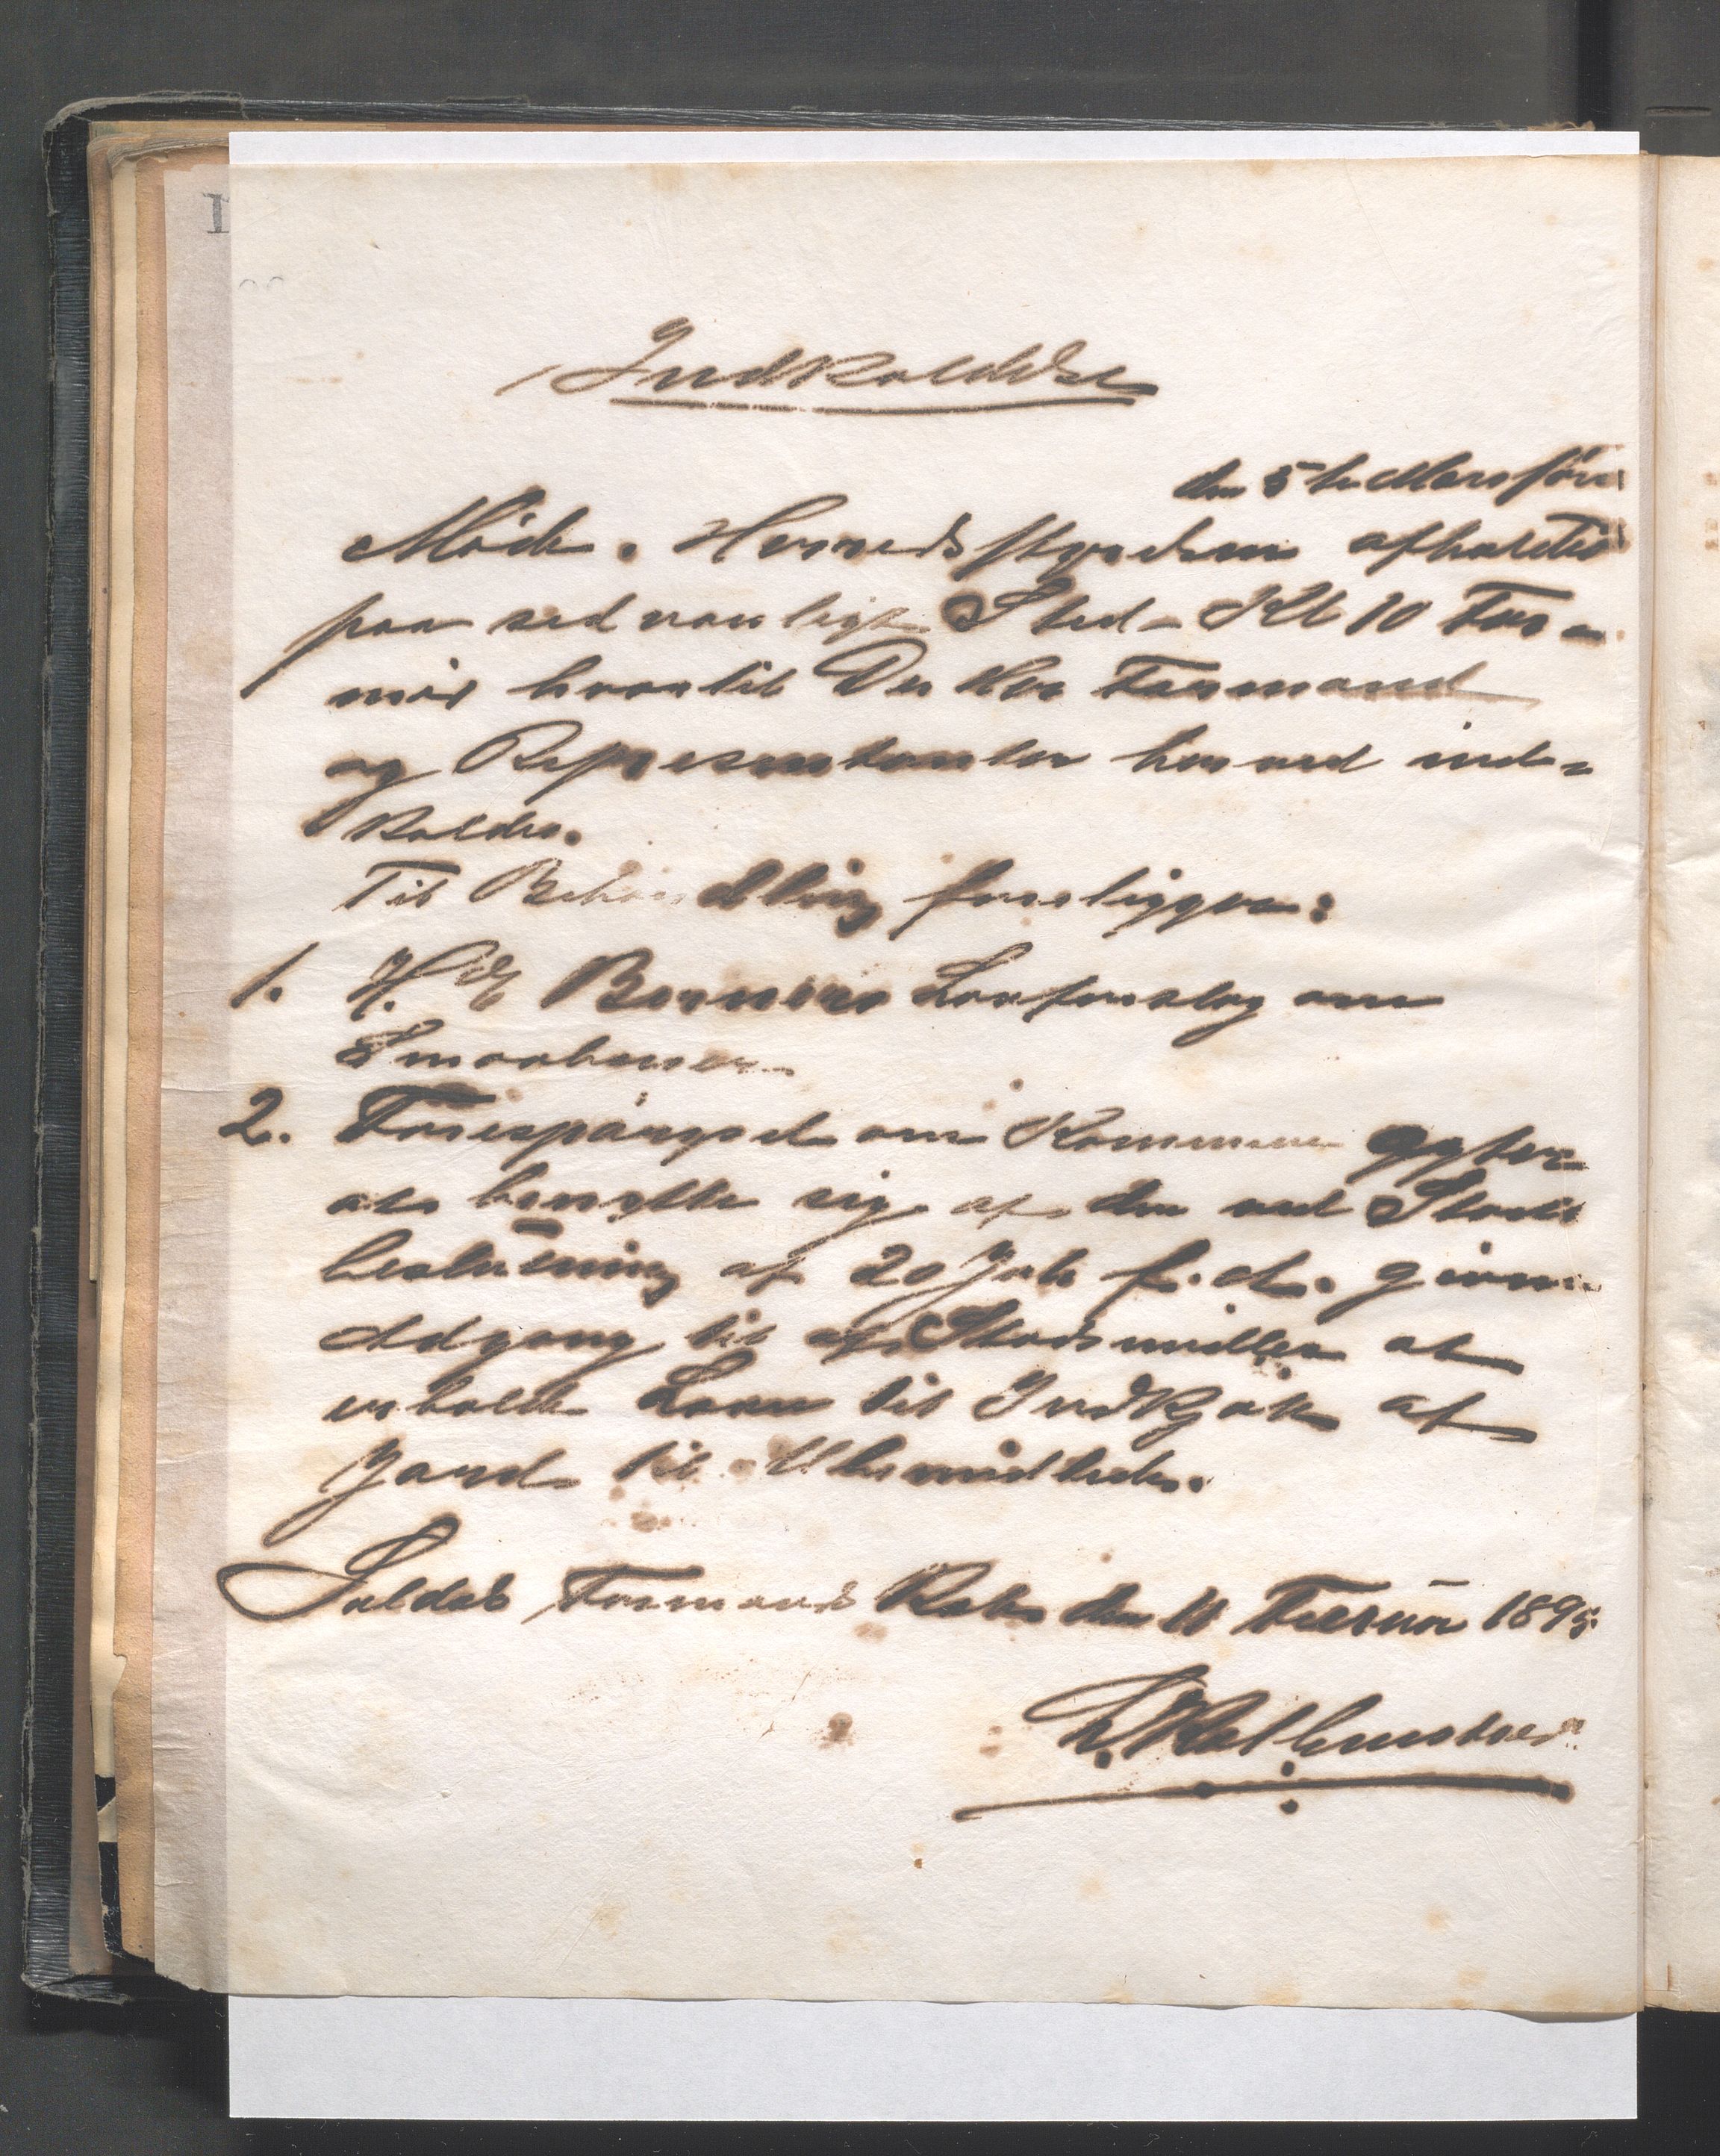 Indkaldelse
den 5te Mars førs
Møde i Herredsstyrelsen afholdes
paa sedvanligt Sted Kl 10 For-
mid hvortil De Herr Formænd
og Representanter herved ind-
kaldes.
Til Behandling foreligger:
1. H. E Berners Lovforslag om
Smaabruser
2. Forespørgsel om Kommunen agter
at benytte sig af den ved Storts
beslutning af 20 Juli f. A. givne
Adgang til af Statsmidler at
erholde Laan til Indkjøb af
Jord til Ubemidlede.
Suldal Formand Kald den 11 Februar 1895